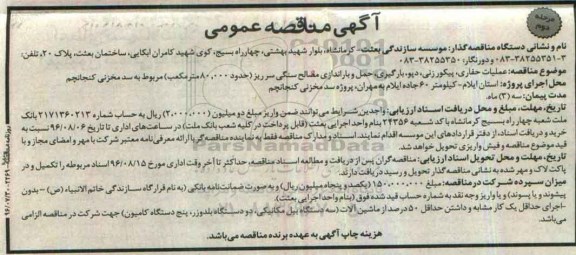 مرحله دوم
آگهی مناقصه عمومی
نام و نشانی دستگاه مناقصه‌گذار: موسسه سازندگی بعثت - کرمانشاه، بلوار شهید بهشتی، چهارراه بسیج، کوی شهید کامران ایکایی، ساختمان بعثت، پلاک ۲۰، تلفن:
۳-۳۸۲۵۵۳۵۱-۰۸۳ و دورنگار: ۳۸۲۵۵۳۵۰-۰۸۳
موضوع مناقصه: عملیات حفاری، پیکورزنی، دپو، بارگیری، حمل و باراندازی مصالح سنگی سرریز (حدود ۸۰,۰۰۰ مترمکعب) مربوط به سد مخزنی کنجانچم
محل اجرای پروژه: استان ایلام - کیلومتر ۶۰ جاده ایلام به مهران، پروژه سد مخزنی کنجانچم
مدت پیمان: سه (۳) ماه.
تاریخ، مهلت، مبلغ و محل دریافت اسناد ارزیابی: واجدین شرایط می‌توانند ضمن واریز مبلغ دو میلیون (۲,۰۰۰,۰۰۰) ریال به حساب شماره ۲۱۷۱۳۶۰۲۱۳ بانک
ملت شعبه چهارراه بسیج کرمانشاه با کد شعبه ۲۴۳۵۶ بنام واحد اجرایی بعثت (قابل پرداخت در کلیه شعب بانک ملت) در ساعت‌های اداری تا تاریخ ۹۶/۰۸/۰۶ نسبت به
خرید و دریافت اسناد، از دفتر قراردادهای این موسسه اقدام نمایند. اسناد و مدارک مناقصه فقط به نماینده مناقصه‌گر با ارائه معرفی‌نامه معتبر شرکت با مهر و امضای مجاز و با
قید موضوع مناقصه و فیش واریزی تحویل خواهد شد.
تاریخ، مهلت و محل تحویل اسناد ارزیابی: مناقصه‌گران پس از دریافت و مطالعه اسناد مناقصه، حداکثر تا آخر وقت اداری مورخ ۹۶/۰۸/۱۵ اسناد مربوطه را تکمیل و در
پاکت لاک و مهر شده به نشانی مناقصه گذار تحویل و رسید دریافت دارند.
میزان سپرده شرکت در مناقصه: مبلغ ۱۵۰,۰۰۰,۰۰۰ (یکصد و پنجاه میلیون ریال) و به صورت ضمانت‌نامه بانکی (به نام قرارگاه سازندگی خاتم الانبیاء (ص) – بدون
پیشوند و یا پسوند) و یا واریز وجه نقد به شماره حساب قید شده فوق (بنام واحد اجرایی بعثت).
-اجرای حداقل یک کار مشابه و داشتن حداقل ۵۰ درصد از ماشین آلات (سه دستگاه بیل مکانیکی، دو دستگاه بلدوزر، پنج دستگاه کامیون) جهت شرکت در مناقصه الزامی
می‌باشد.
هزینه چاپ آگهی به عهده برنده مناقصه می‌باشد.
ParsNamadData